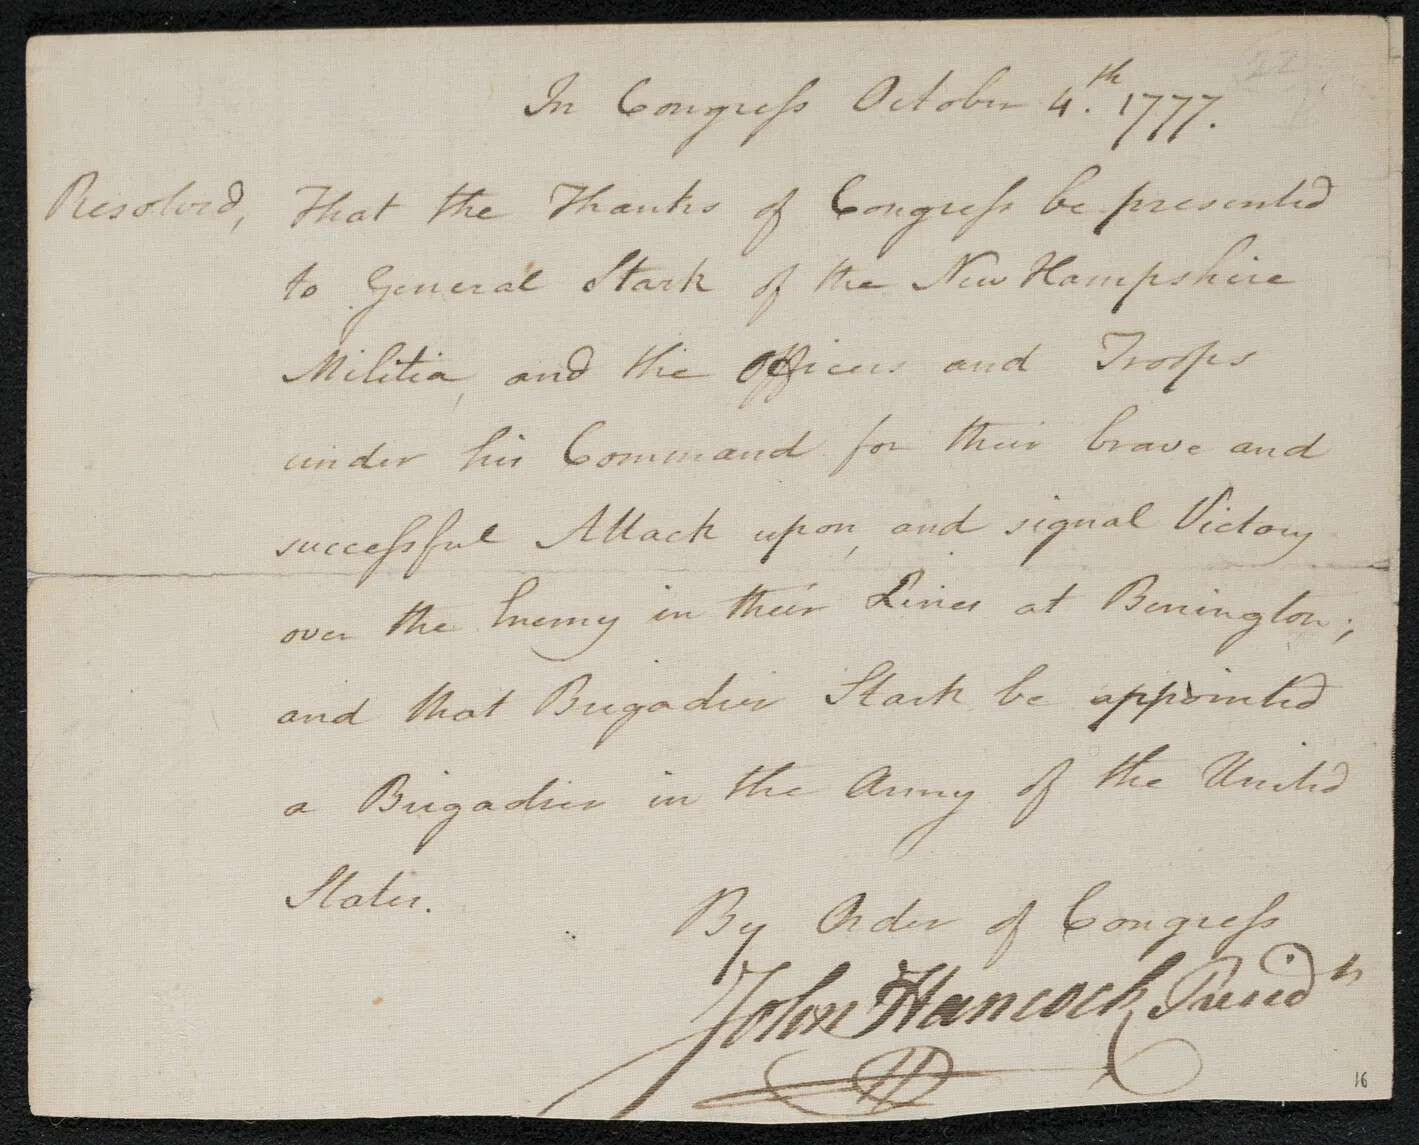 22
In Congreſs October 4.th 1777.
Resolved, That the Thanks of Congreſs be presented
to General Stark of the New Hampshire
Militia, and the Officers and Troops
under his Command for their brave and
succeſsful Attack upon, and signal Victory
over the Enemy in their Lines at Benington;
and that Brigadier Stark be appointed
a Brigadier in the Army of the United
States.
By Order of Congreſs
John Hancock Presidt
16